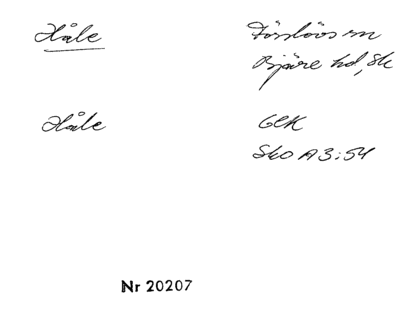 Håle
Förslövs sn
Bjäre hd, Sk
Håle
GEK
Sko A3:54
Nr 20207